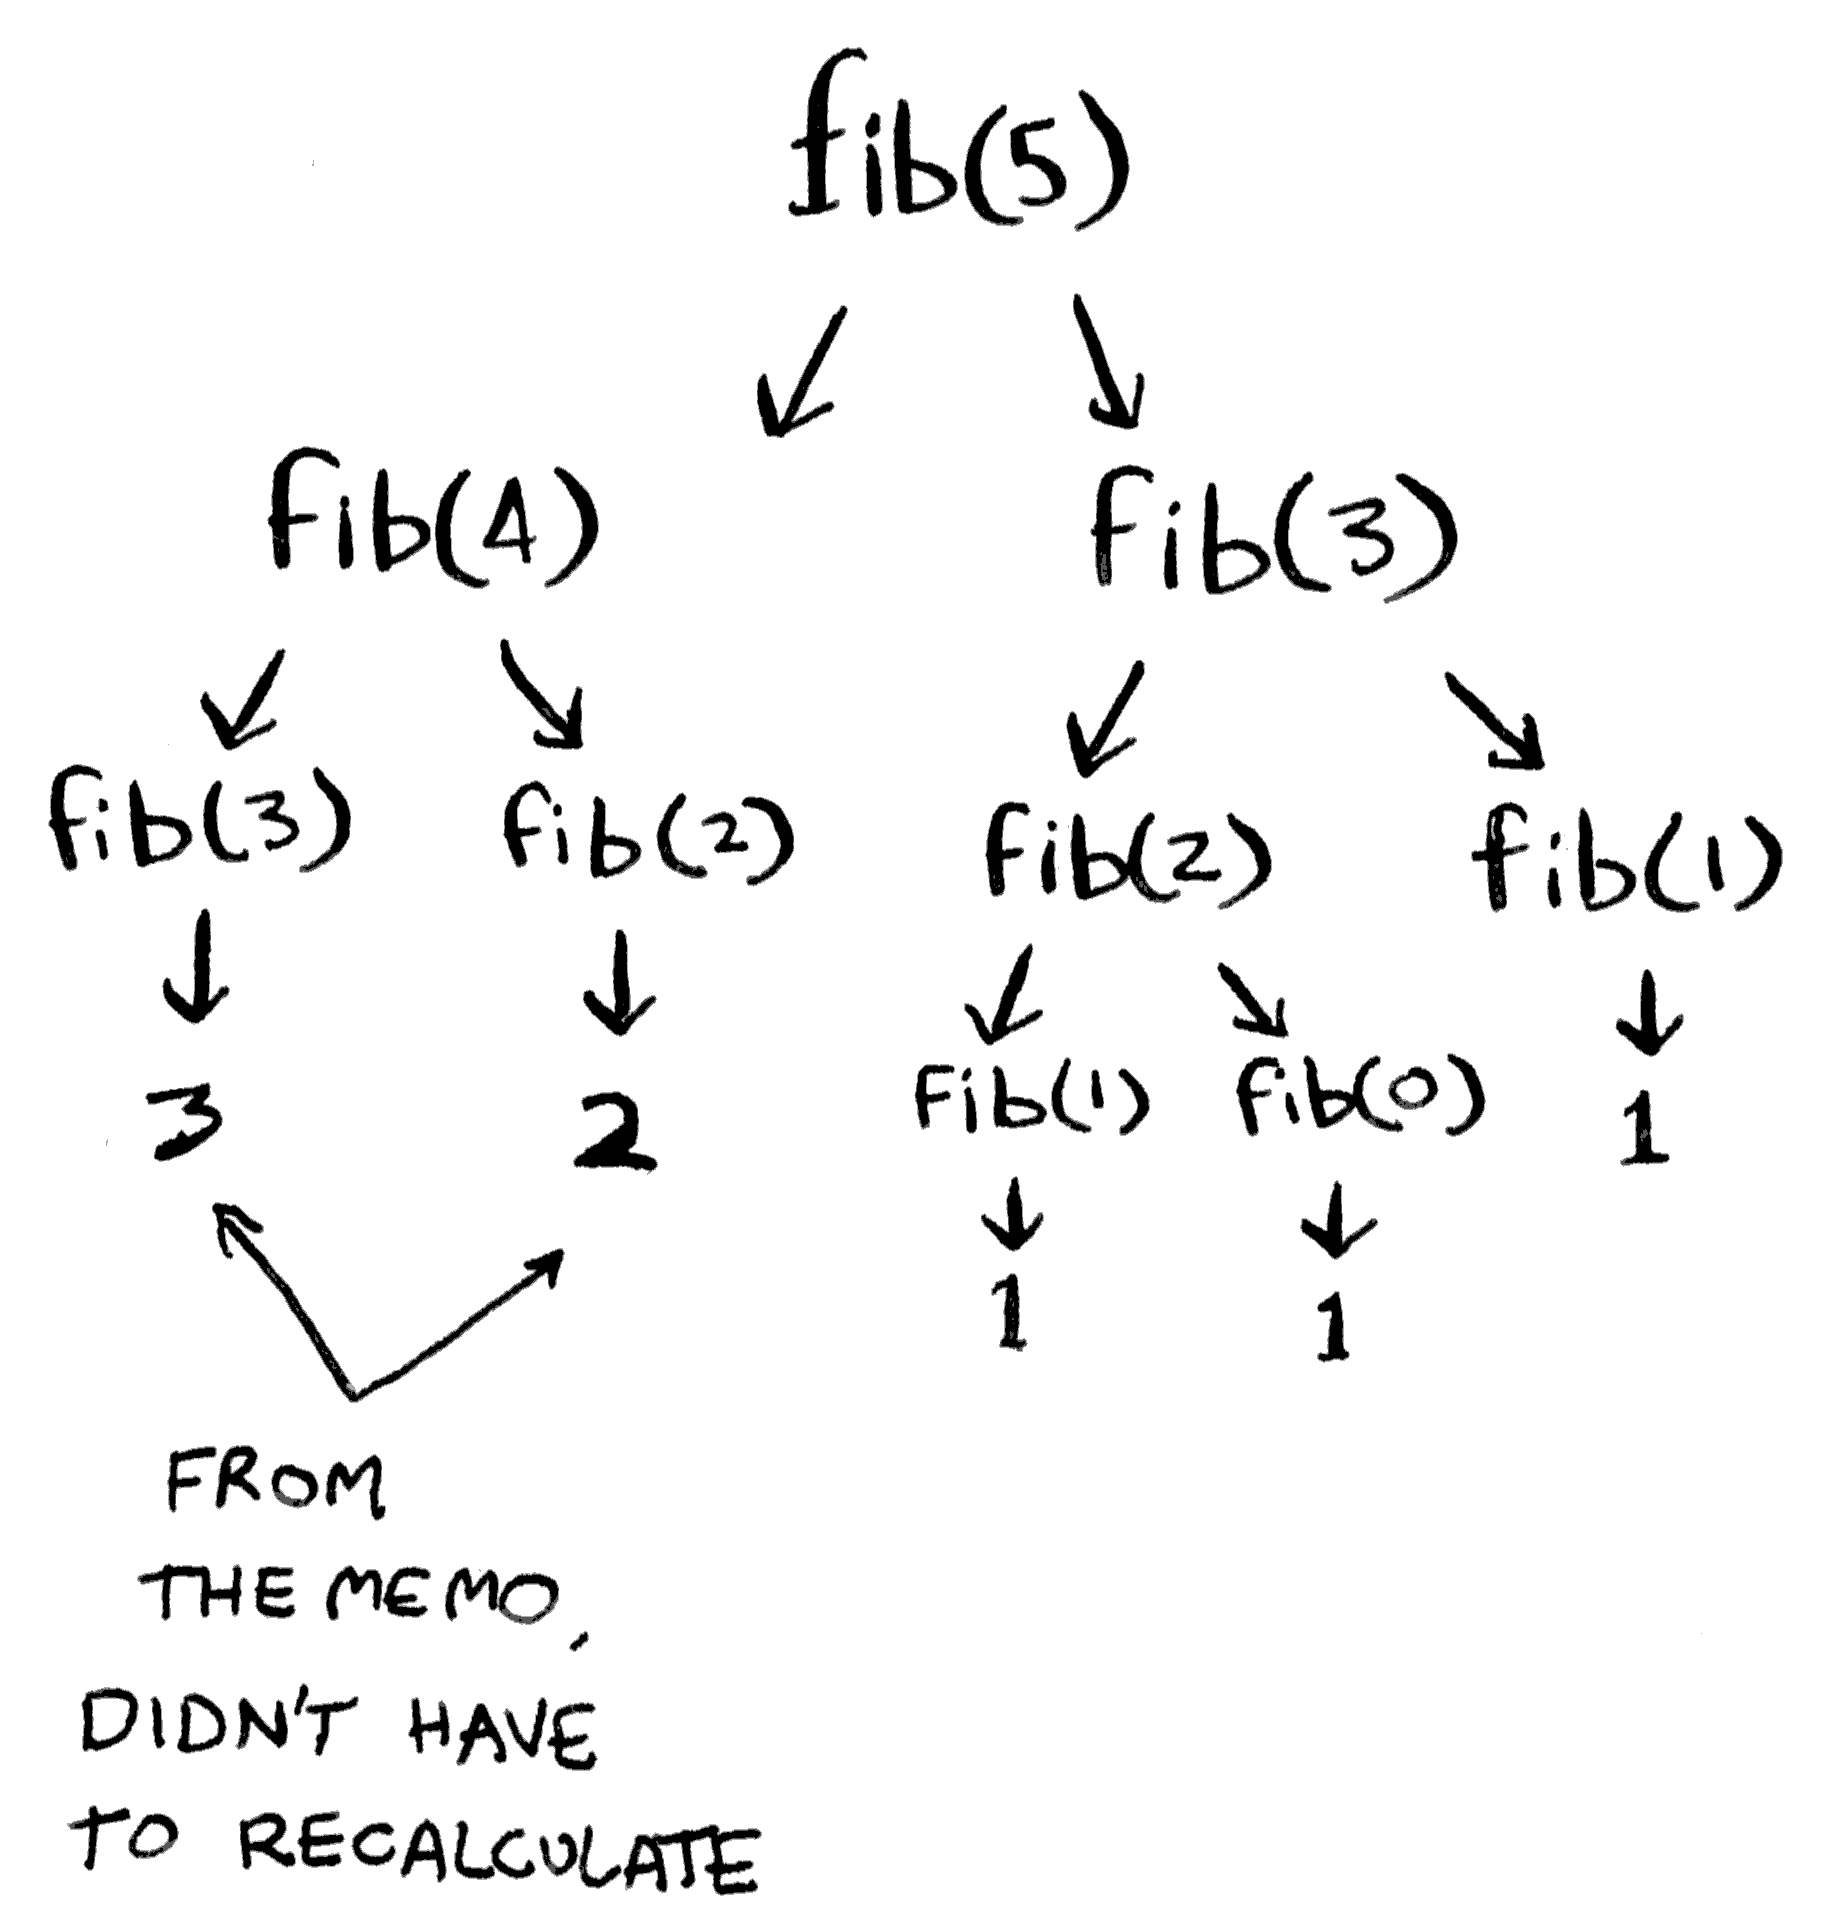 fib(5)
fib(4) fib(3)
fib(3) fib(2) fib(2) fib(1)
3 2 fib(1) fib(0) 1
1 1
FROM
THE MEMO,
DIDN'T HAVE
TO RECALCULATE